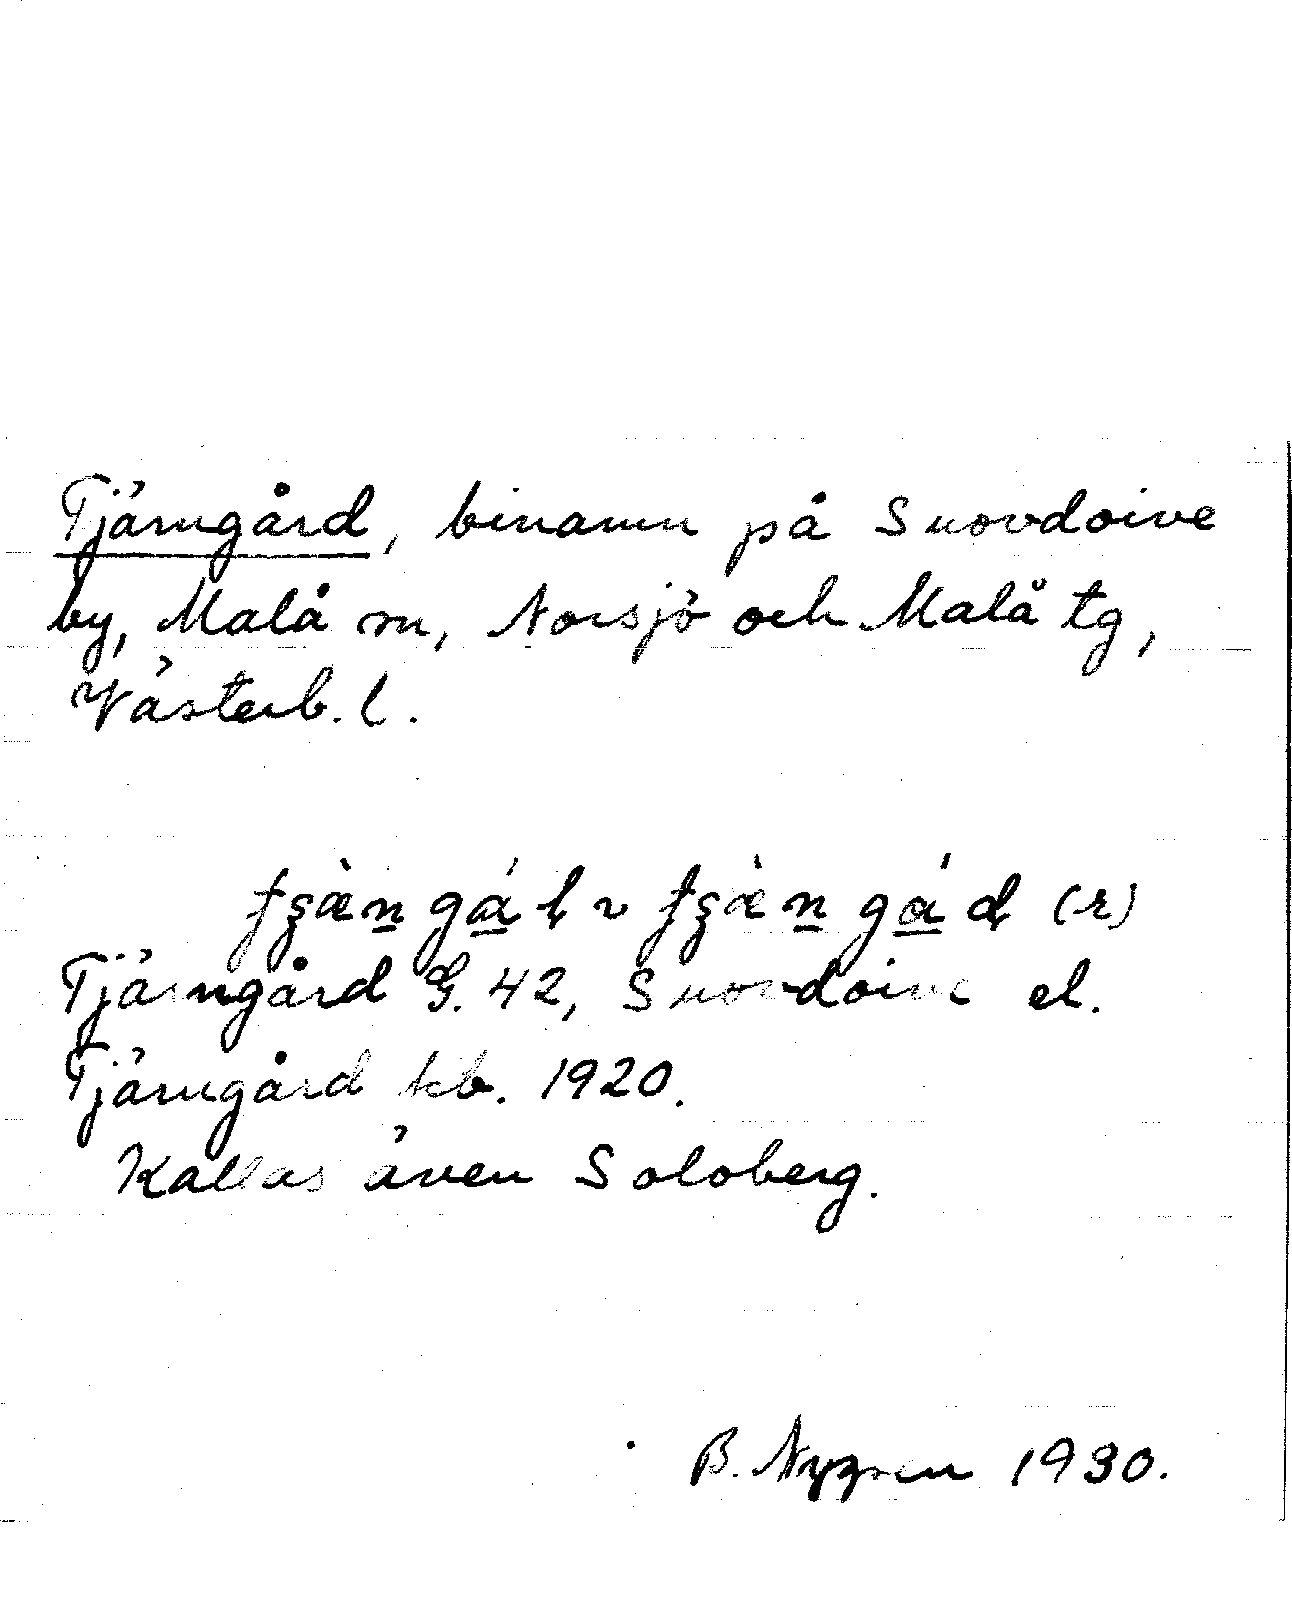 Tjärngård, binamn på Snovdoive
by, Malå sn, Norsjö och Malå tg,
Västerb. l.
Tjärngård G. 42, Snovdoive el.
Tjärngård kb. 1920.
Kallas även Soloberg.
B. Nygren 1930.